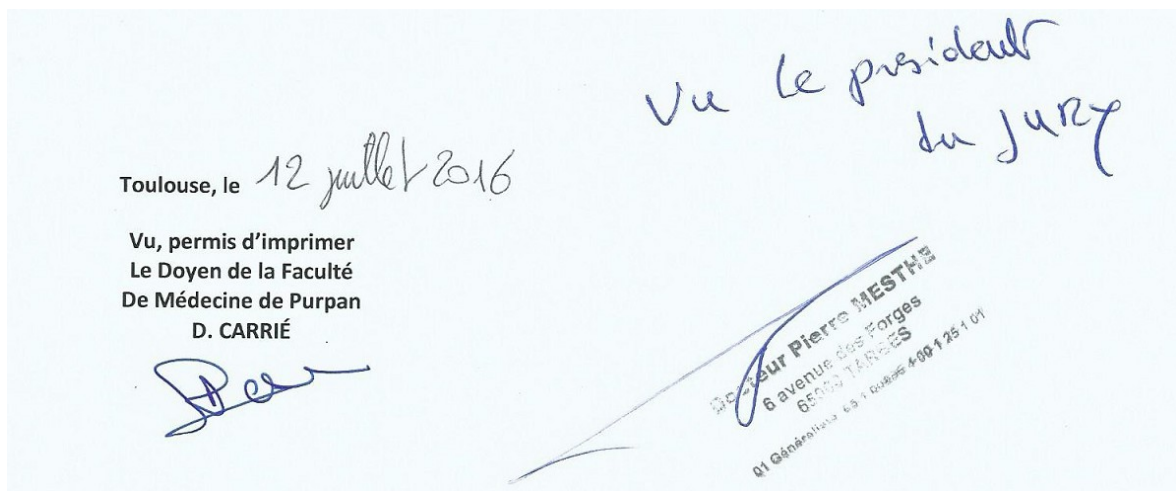 Vu le president
du JURY
Toulouse, le 12 juillet 2016
Vu, permis d'imprimer
Le Doyen de la Faculté
De Médecine de Purpan
D. CARRIÉ
Docteur Pierre MESTHE
6 avenue des Forges
TARBES
01 Généraliste